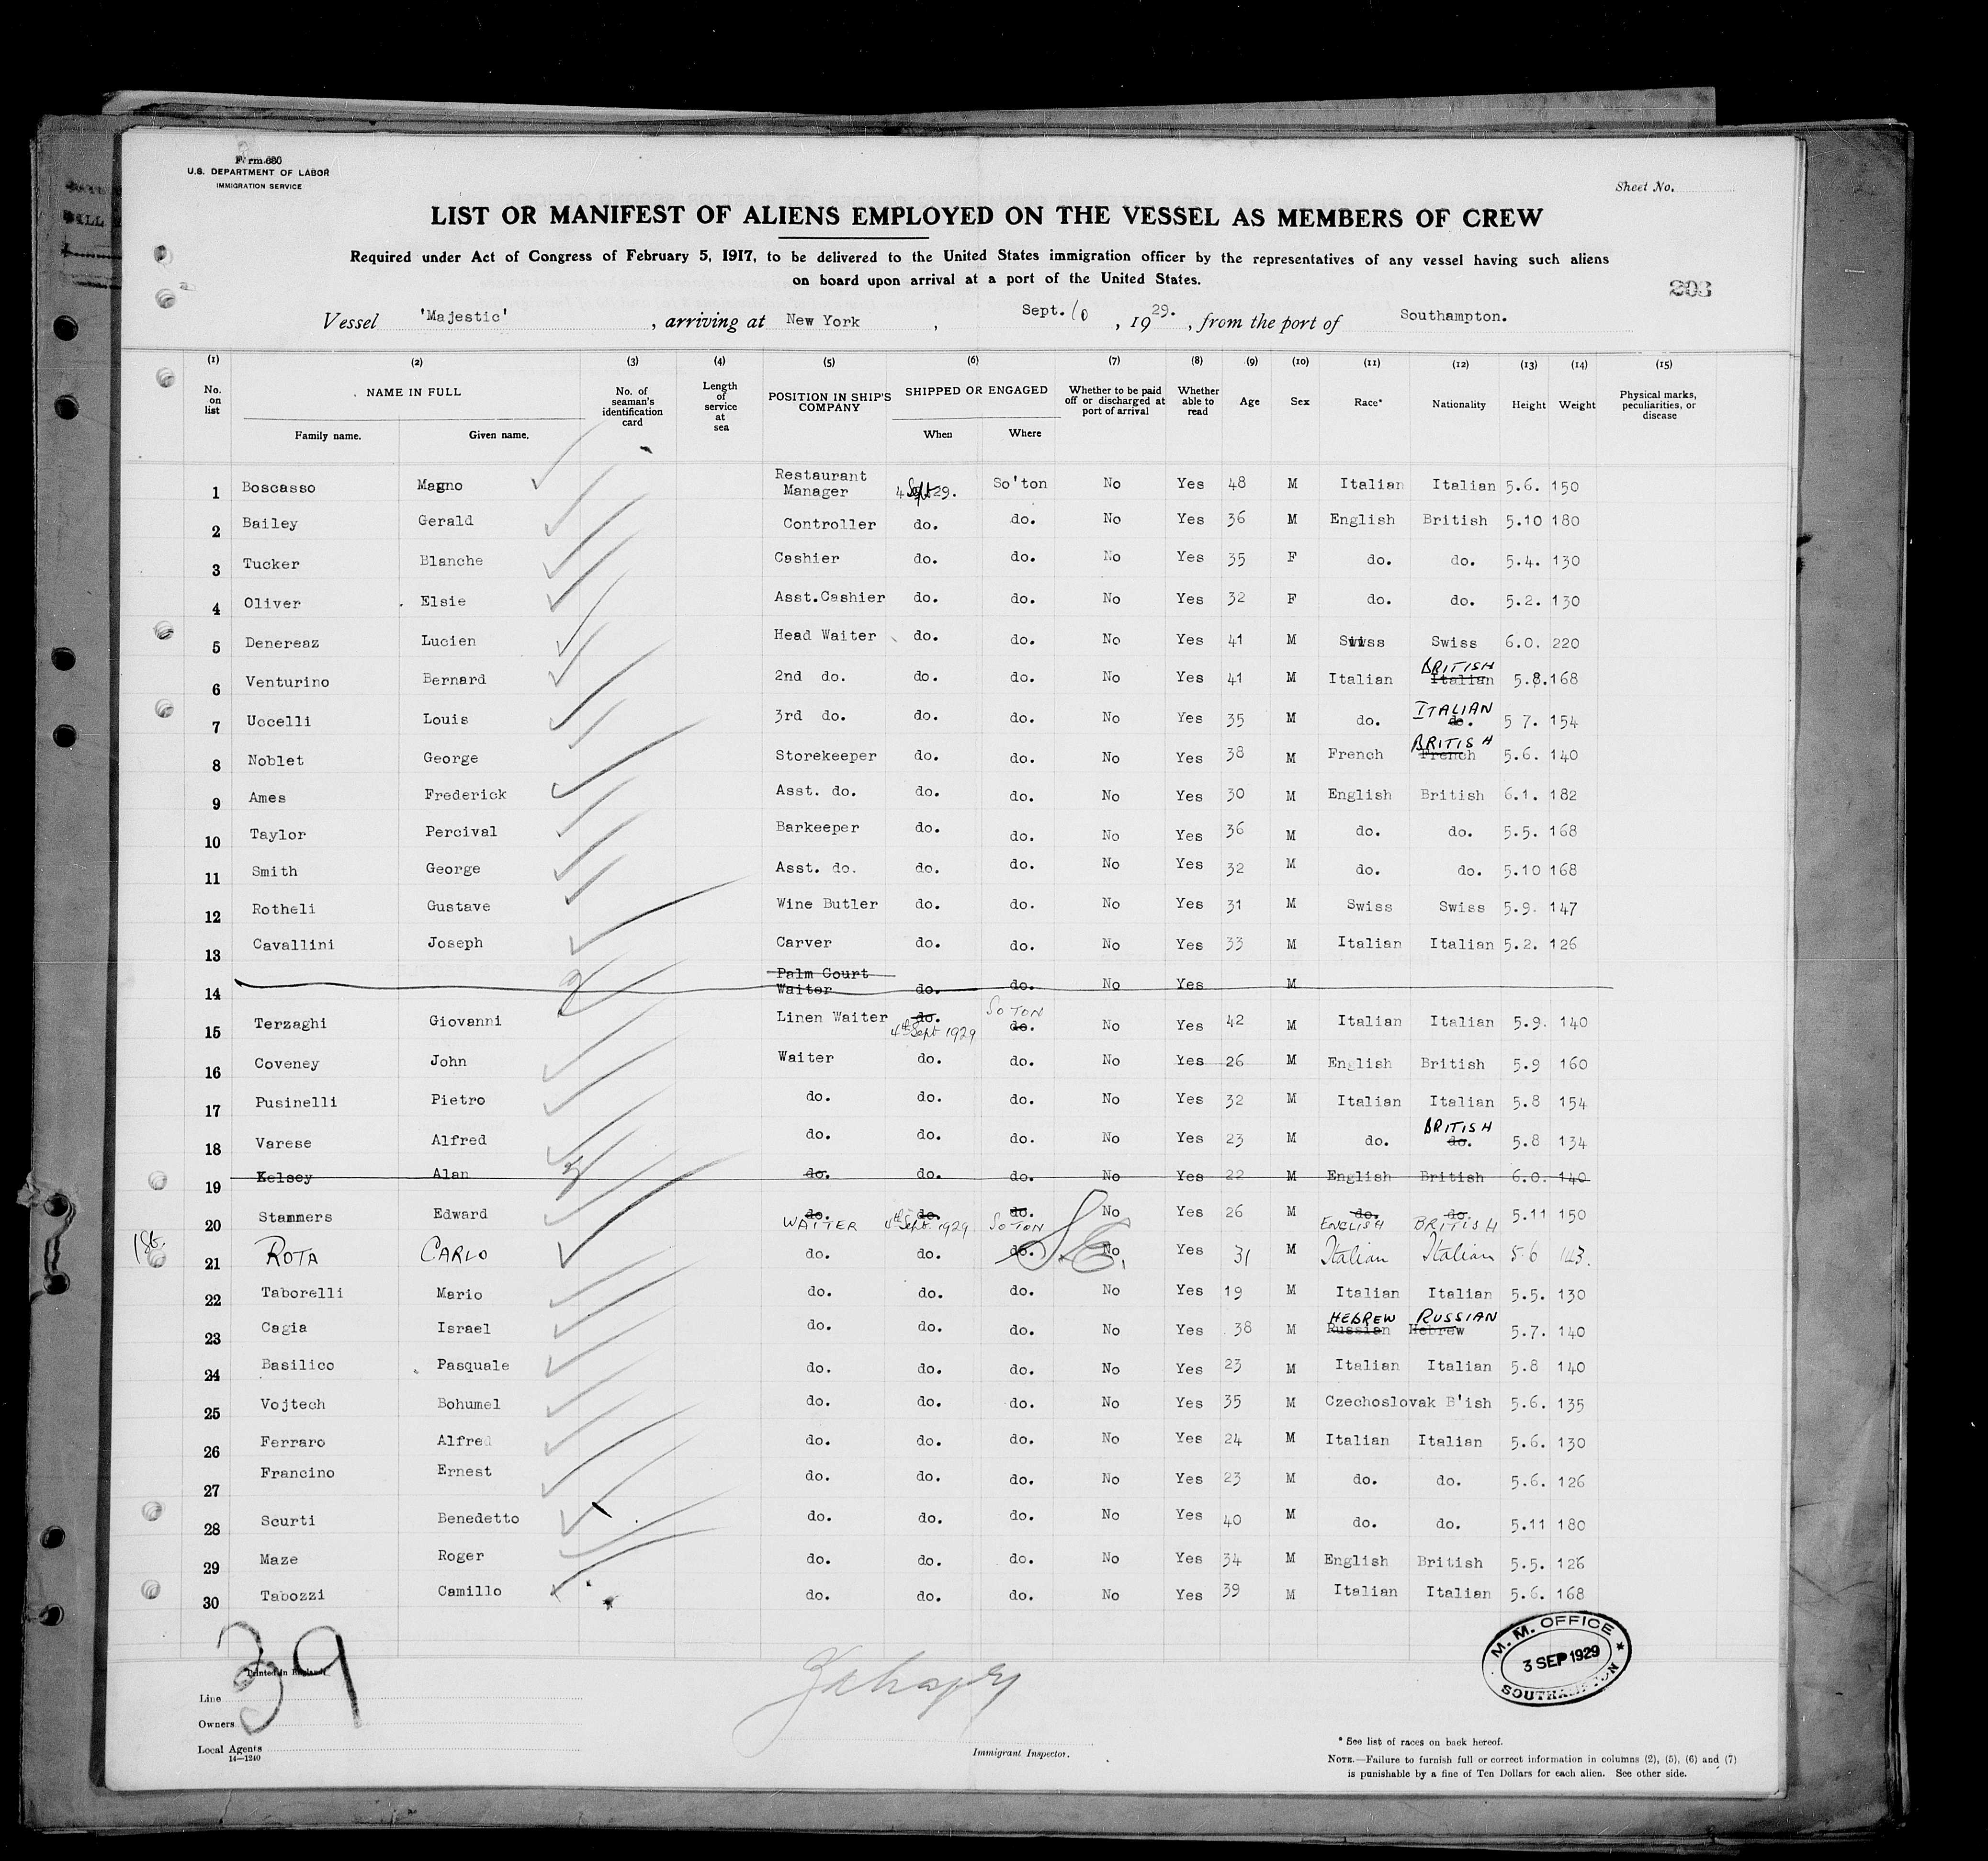 Form 680
U.S. DEPARTMENT OF LABOR
IMMIGRATION SERVICE
Sheet No.
LIST OR MANIFEST OF ALIENS EMPLOYED ON THE VESSEL AS MEMBERS OF CREW
Required under Act of Congress of February 5, 1917, to be delivered to the United States immigration officer by the representatives of any vessel having such aliens
on board upon arrival at a port of the United States.
203
Vessel 'Majestic' , arriving at New York , Sept. 10 , 1929. , from the port of Southampton.
(1) (2) (3) (4) (5) (6) (7) (8) (9) (10) (11) (12) (13) (14) (15)
No. on list NAME IN FULL Family name. Given name. No. of seaman's identification card Length of service at sea POSITION IN SHIP'S COMPANY SHIPPED OR ENGAGED When Where Whether to be paid off or discharged at port of arrival Whether able to read Age Sex Race* Nationality Height Weight Physical marks, peculiarities, or disease
1 Boscasso Magno Restaurant Manager 4 Sept 29. So'ton No Yes 48 M Italian Italian 5.6. 150
2 Bailey Gerald Controller do. do. No Yes 36 M English British 5.10 180
3 Tucker Blanche Cashier do. do. No Yes 35 F do. do. 5.4. 130
4 Oliver Elsie Asst.Cashier do. do. No Yes 32 F do. do. 5.2. 130
5 Denereaz Lucien Head Waiter do. do. No Yes 41 M Swiss Swiss 6.0. 220
6 Venturino Bernard 2nd do. do. do. No Yes 41 M Italian Italian BRITISH 5.8. 168
7 Uccelli Louis 3rd do. do. do. No Yes 35 M do. do. ITALIAN 5 7. 154
8 Noblet George Storekeeper do. do. No Yes 38 M French French BRITISH 5.6. 140
9 Ames Frederick Asst. do. do. do. No Yes 30 M English British 6.1. 182
10 Taylor Percival Barkeeper do. do. No Yes 36 M do. do. 5.5. 168
11 Smith George Asst. do. do. do. No Yes 32 M do. do. 5.10 168
12 Rotheli Gustave Wine Butler do. do. No Yes 31 M Swiss Swiss 5.9. 147
13 Cavallini Joseph Carver do. do. No Yes 33 M Italian Italian 5.2. 126
14 Palm Court Waiter do. do. No Yes M
15 Terzaghi Giovanni Linen Waiter do. 4th Sept 1929 do. SO TON No Yes 42 M Italian Italian 5.9. 140
16 Coveney John Waiter do. do. No Yes 26 M English British 5.9 160
17 Pusinelli Pietro do. do. do. No Yes 32 M Italian Italian 5.8 154
18 Varese Alfred do. do. do. No Yes 23 M do. do. BRITISH 5.8 134
19 Kelsey Alan do. do. do. No Yes 22 M English British 6.0. 140
20 Stammers Edward do. WAITER do. 4th Sept. 1929 do. SO TON No Yes 26 M do. ENGLISH do. BRITISH 5.11 150
21 ROTA CARLO do. do. do. No Yes 31 M Italian Italian 5.6 143.
22 Taborelli Mario do. do. do. No Yes 19 M Italian Italian 5.5. 130
23 Cagia Israel do. do. do. No Yes 38 M Russian HEBREW Hebrew RUSSIAN 5.7. 140
24 Basilico Pasquale do. do. do. No Yes 23 M Italian Italian 5.8 140
25 Vojtech Bohumel do. do. do. No Yes 35 M Czechoslovak B'ish 5.6. 135
26 Ferraro Alfred do. do. do. No Yes 24 M Italian Italian 5.6. 130
27 Francino Ernest do. do. do. No Yes 23 M do. do. 5.6. 126
28 Scurti Benedetto do. do. do. No Yes 40 M do. do. 5.11 180
29 Maze Roger do. do. do. No Yes 34 M English British 5.5. 126
30 Tabozzi Camillo do. do. do. No Yes 39 M Italian Italian 5.6. 168
39
Printed in England
M. M. OFFICE
3 SEP 1929
SOUTHAMPTON
Line
Owners
Local Agents
14—1240
Immigrant Inspector.
* See list of races on back hereof.
NOTE.—Failure to furnish full or correct information in columns (2), (5), (6) and (7)
is punishable by a fine of Ten Dollars for each alien. See other side.